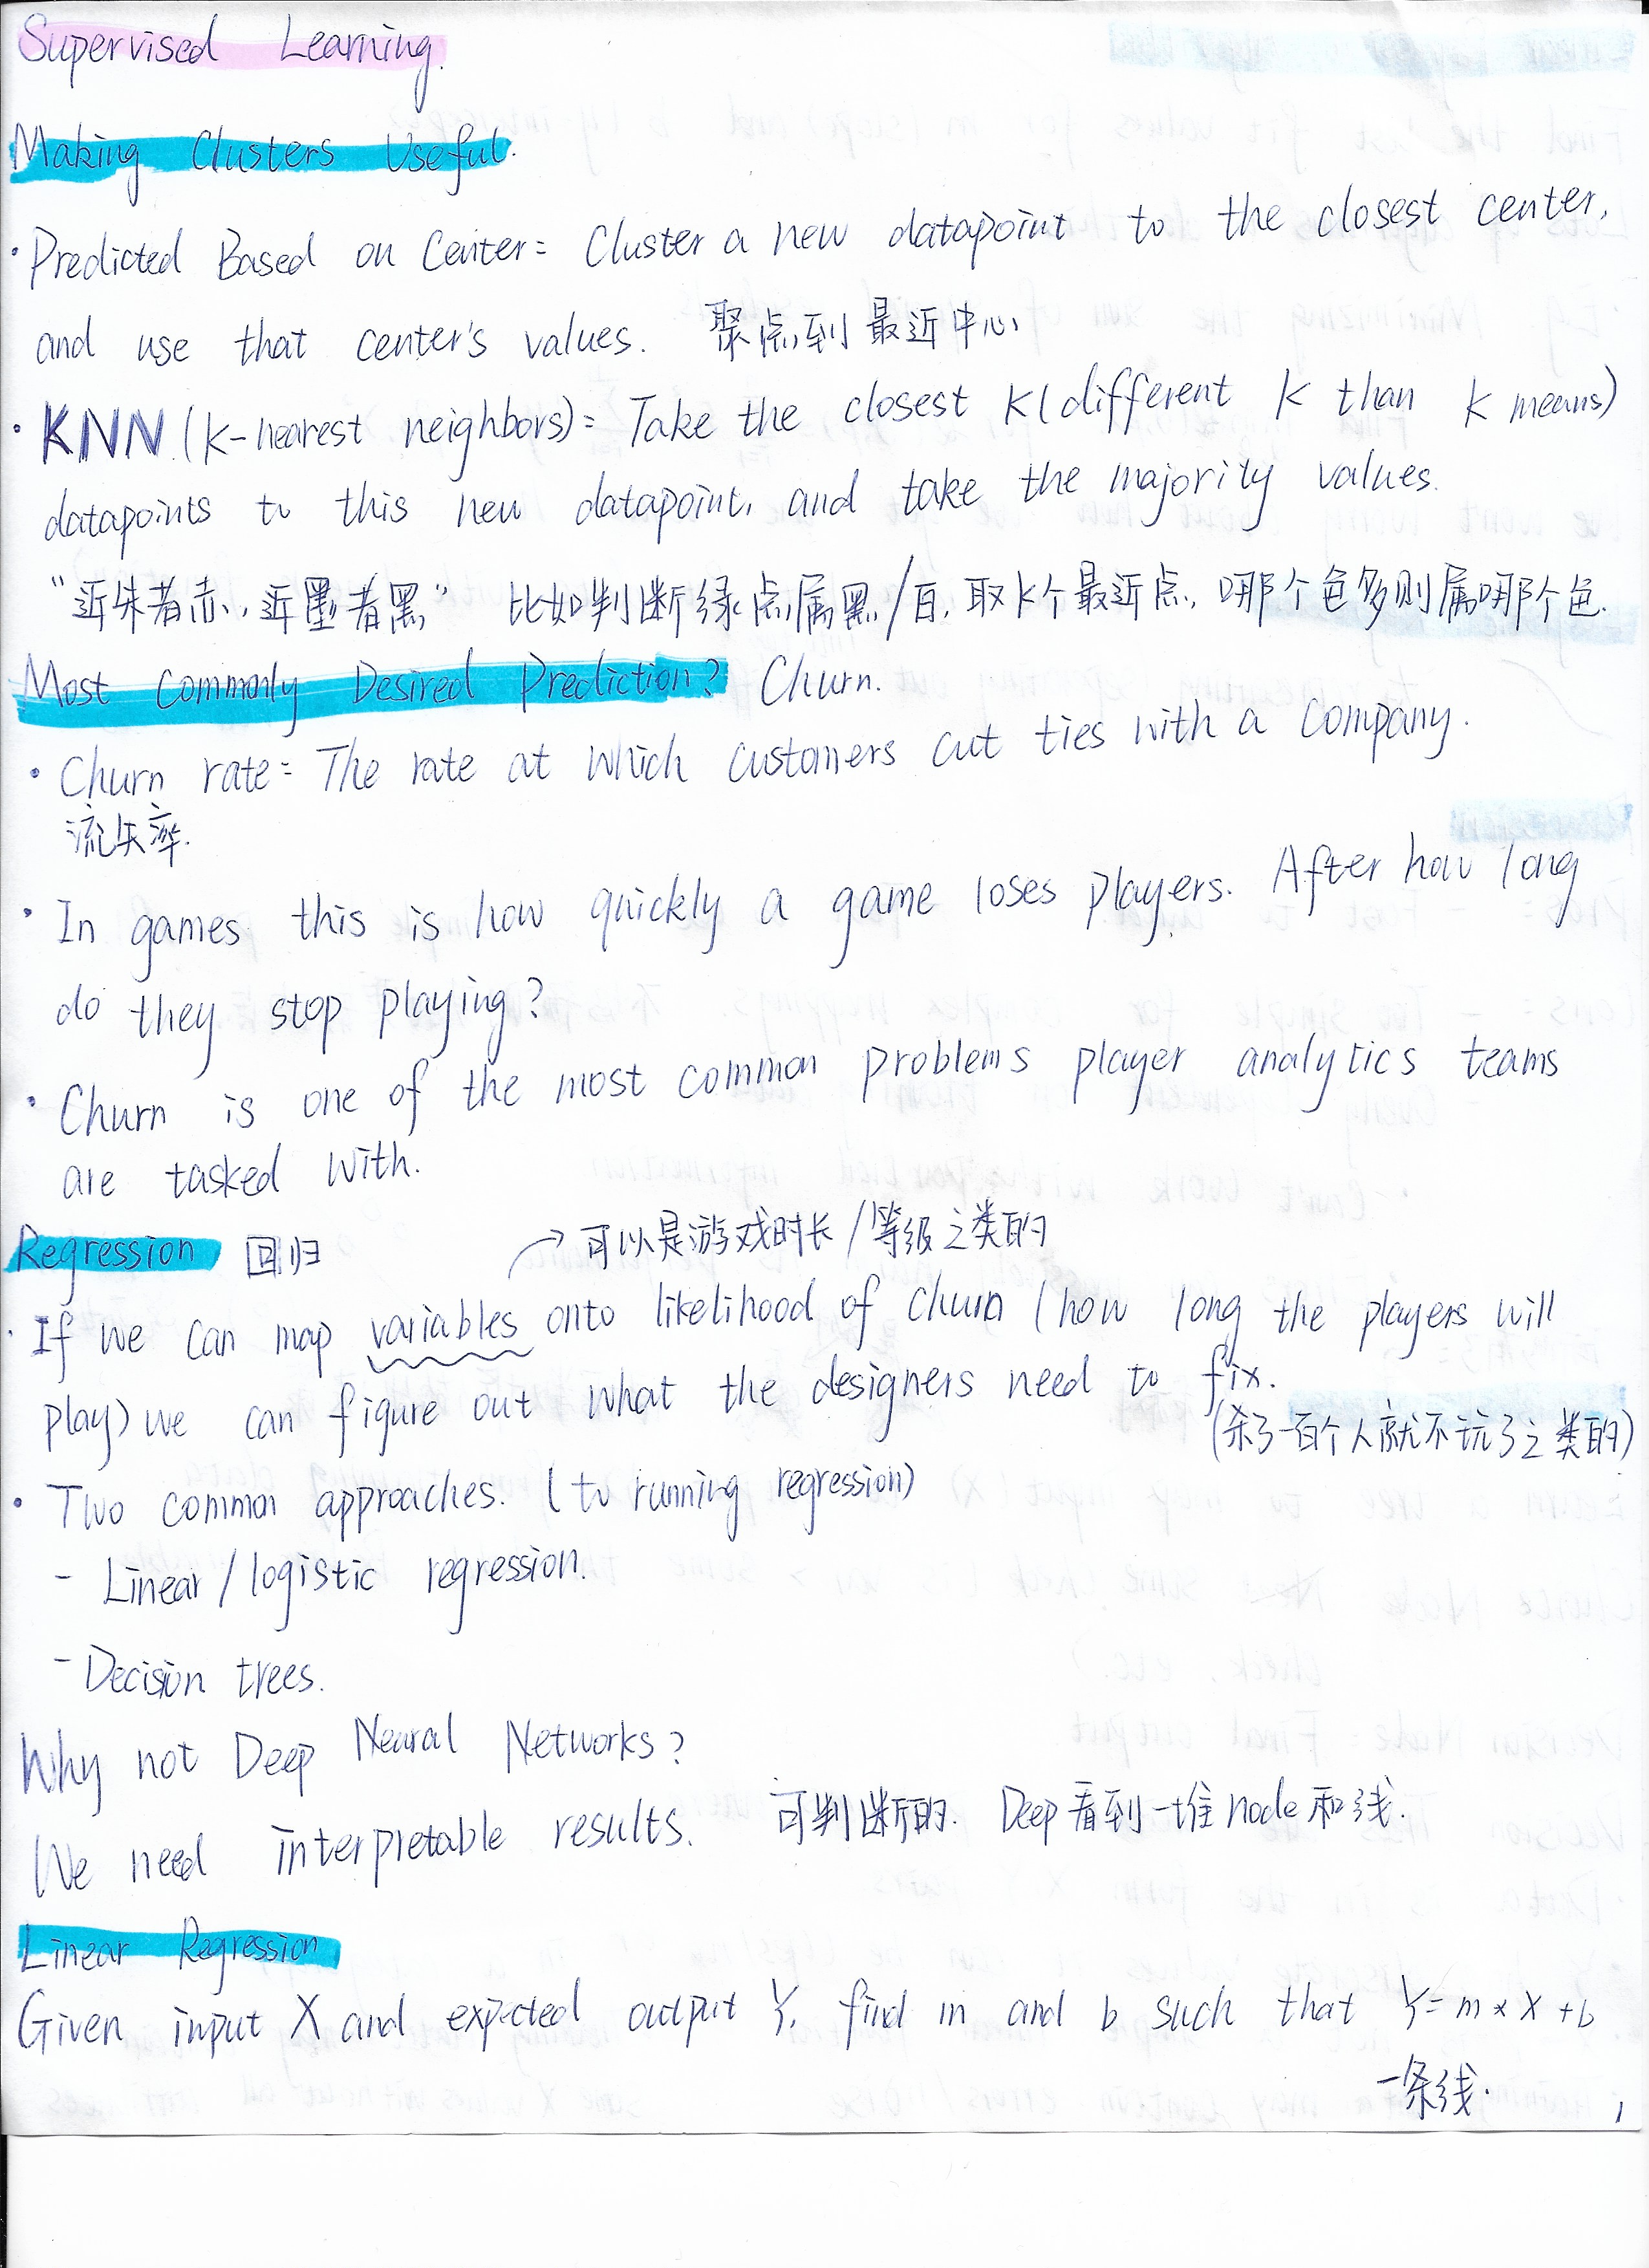 Supervised Learning.
Making Clusters Useful.
· Predicted Based on Center: Cluster a new datapoint to the closest center,
and use that center's values. 聚点到最近中心
· KNN (K-nearest neighbors): Take the closest K (different K than K means)
datapoints to this new datapoint, and take the majority values.
"近朱者赤, 近墨者黑" 比如判断绿点属黑/白, 取K个最近点, 哪个色多则属哪个色.
Most Commonly Desired Prediction? Churn.
· Churn rate: The rate at which customers cut ties with a company.
流失率.
· In games this is how quickly a game loses players. After how long
do they stop playing?
· Churn is one of the most common problems player analytics teams
are tasked with.
Regression 回归 → 可以是游戏时长/等级之类的
· If we can map variables onto likelihood of churn (how long the players will
play) we can figure out what the designers need to fix.
(杀了一百个人就不玩了之类的)
· Two common approaches. (to running regression)
- Linear/logistic regression.
- Decision trees.
Why not Deep Neural Networks?
We need interpretable results. 可判断的. Deep看到一堆node和线.
Linear Regression
Given input X and expected output Y, find m and b such that Y = m * X + b
一条线.